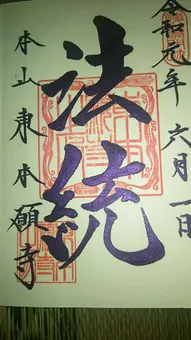 令和元年 六月一日
法統
本山 東本願寺